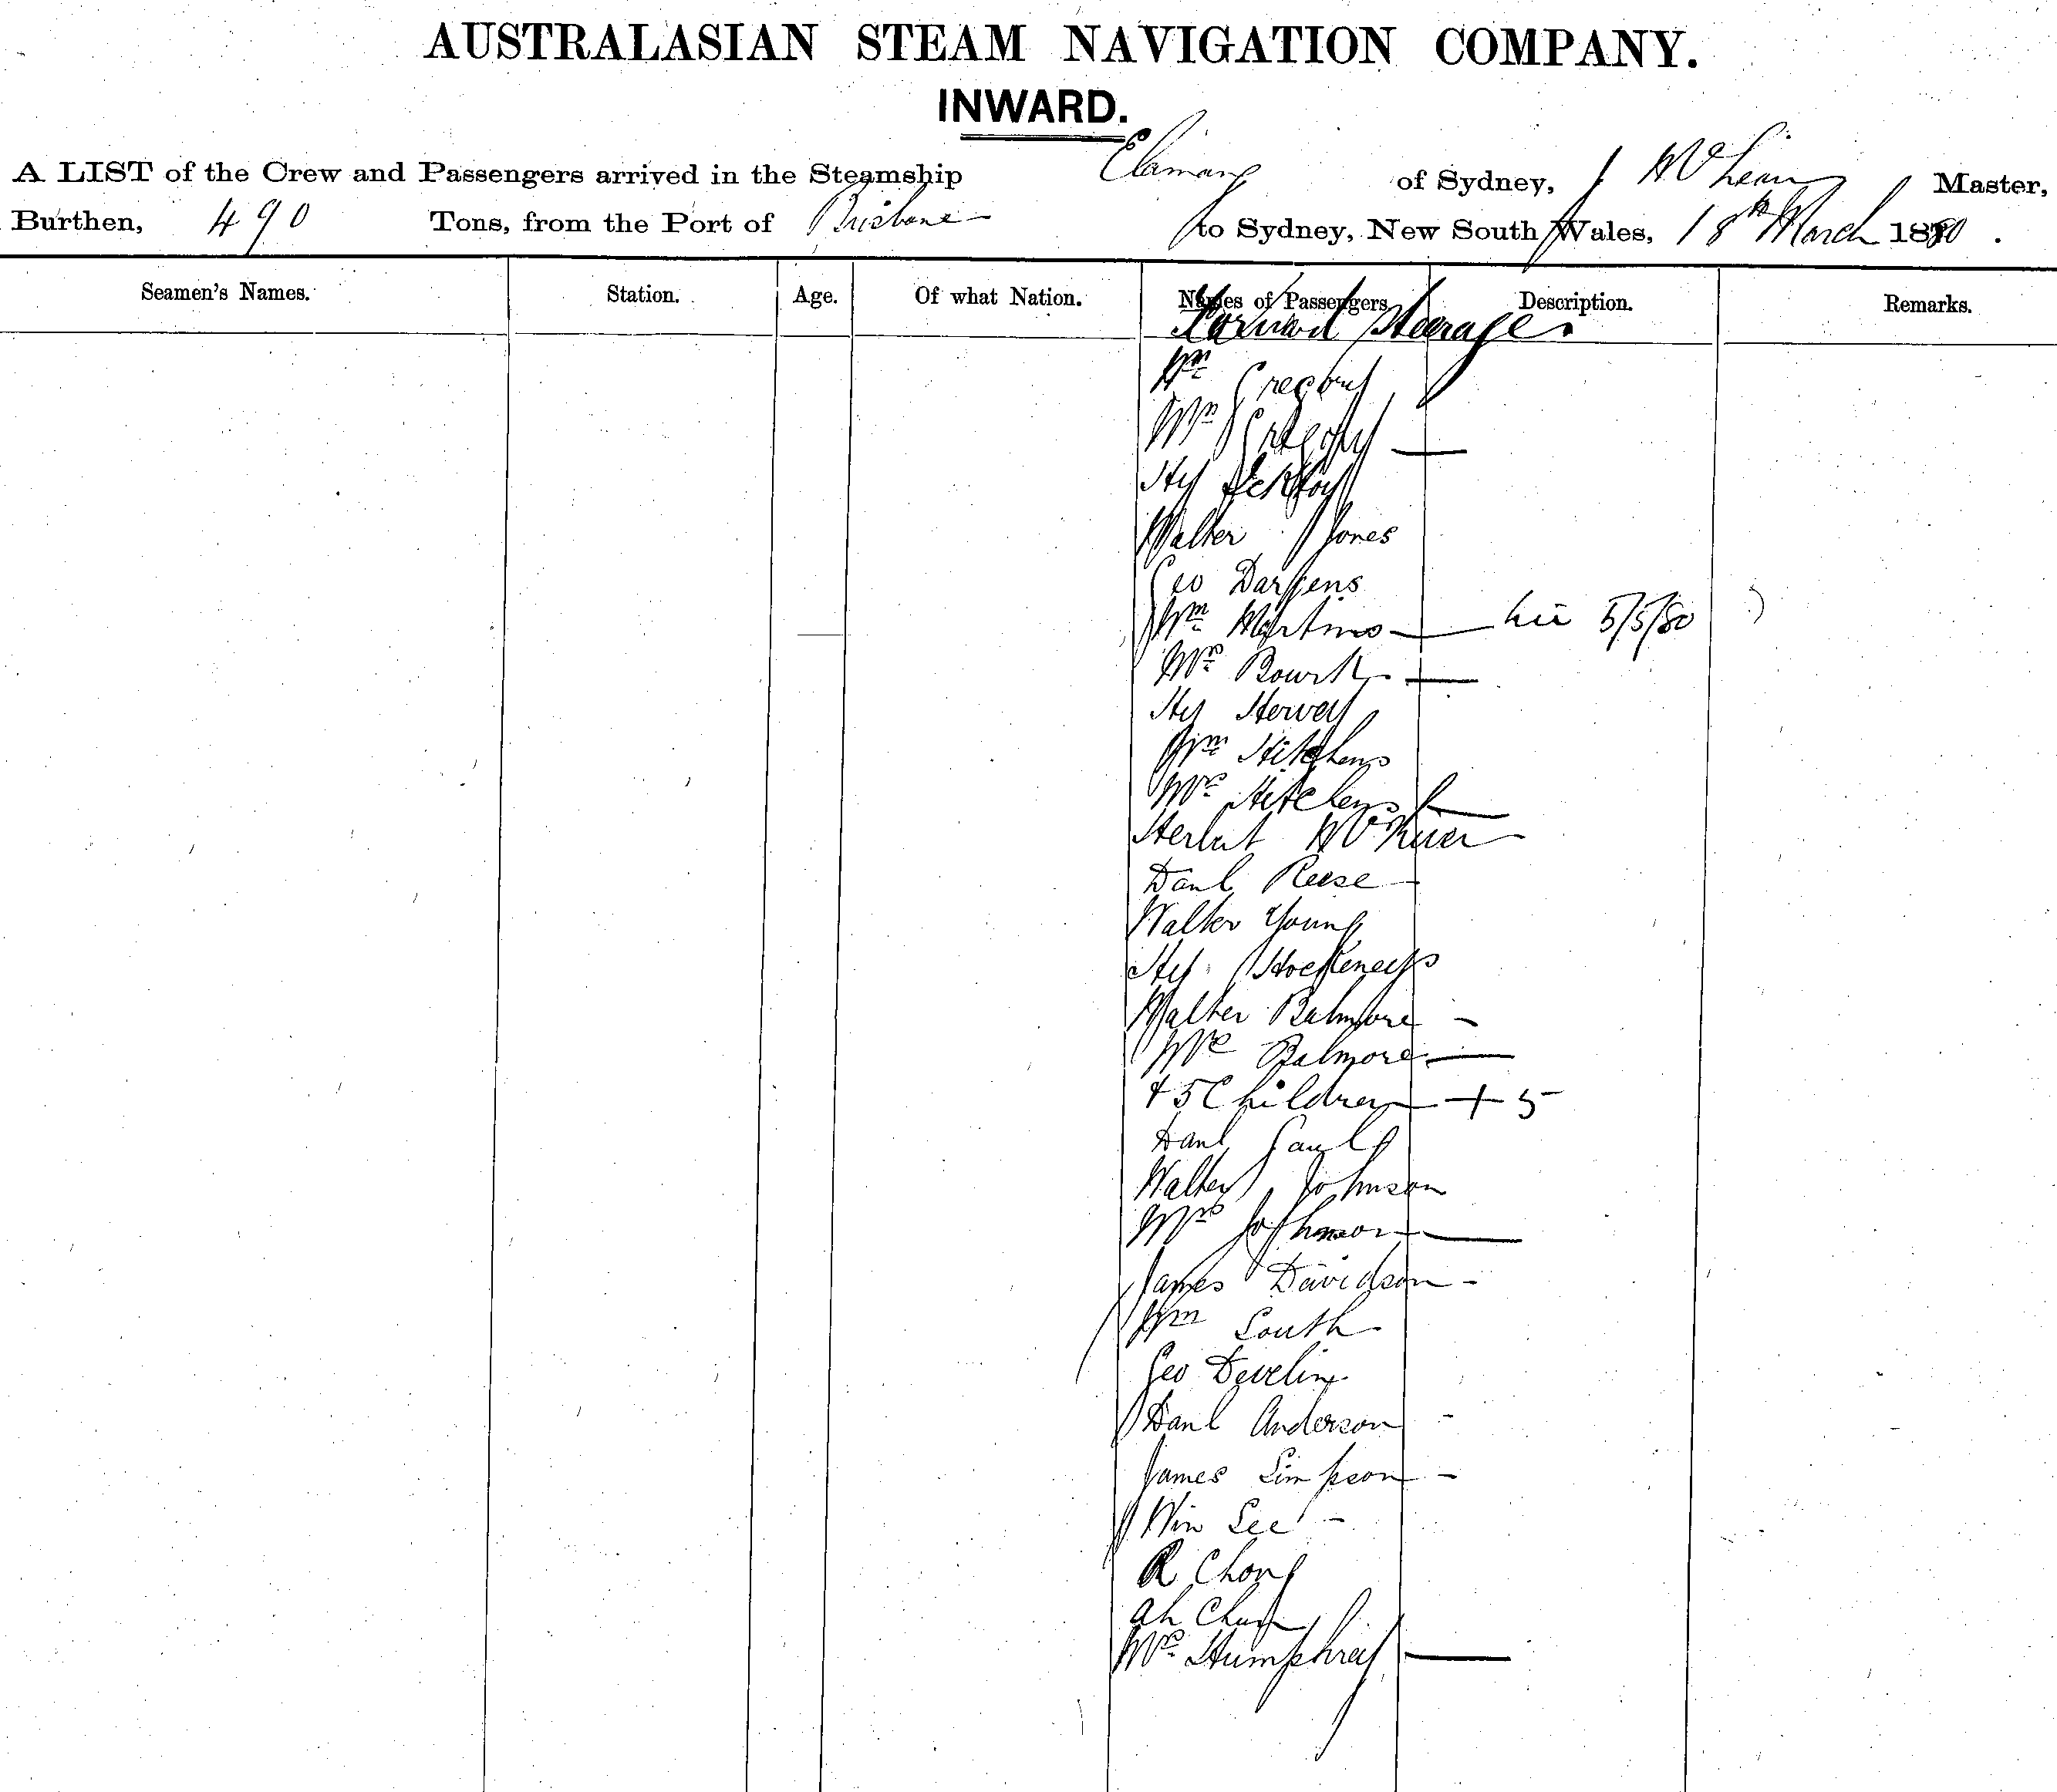 AUSTRALASIAN STEAM NAVIGATION COMPANY.
INWARD.
A LIST of the Crew and Passengers arrived in the Steamship Elamang of Sydney, J McLean Master,
Burthen, 490 Tons, from the Port of Brisbane to Sydney, New South Wales, 18th March 1880.
Seamen's Names. Station. Age. Of what Nation. Names of Passengers Description. Remarks.
Forward Steerage
Wm Gregory
Mrs Gregory
Hy
Walter Jones
Geo
Wm Martins 5/5/80
Mrs Bourk
Hy Hervey
Wm Hitchens
Mrs Hitchens
Herbert
Danl Reese
Walter Young
Hy
Walter Balmore
Mrs Balmore
+ 5 Children + 5
Danl
Walter Johnson
Mrs Johnson
James Davidson
Wm South
Geo Develin
Danl Anderson
James Simpson
Win See
R Chong
Ah
Mrs Humphrey